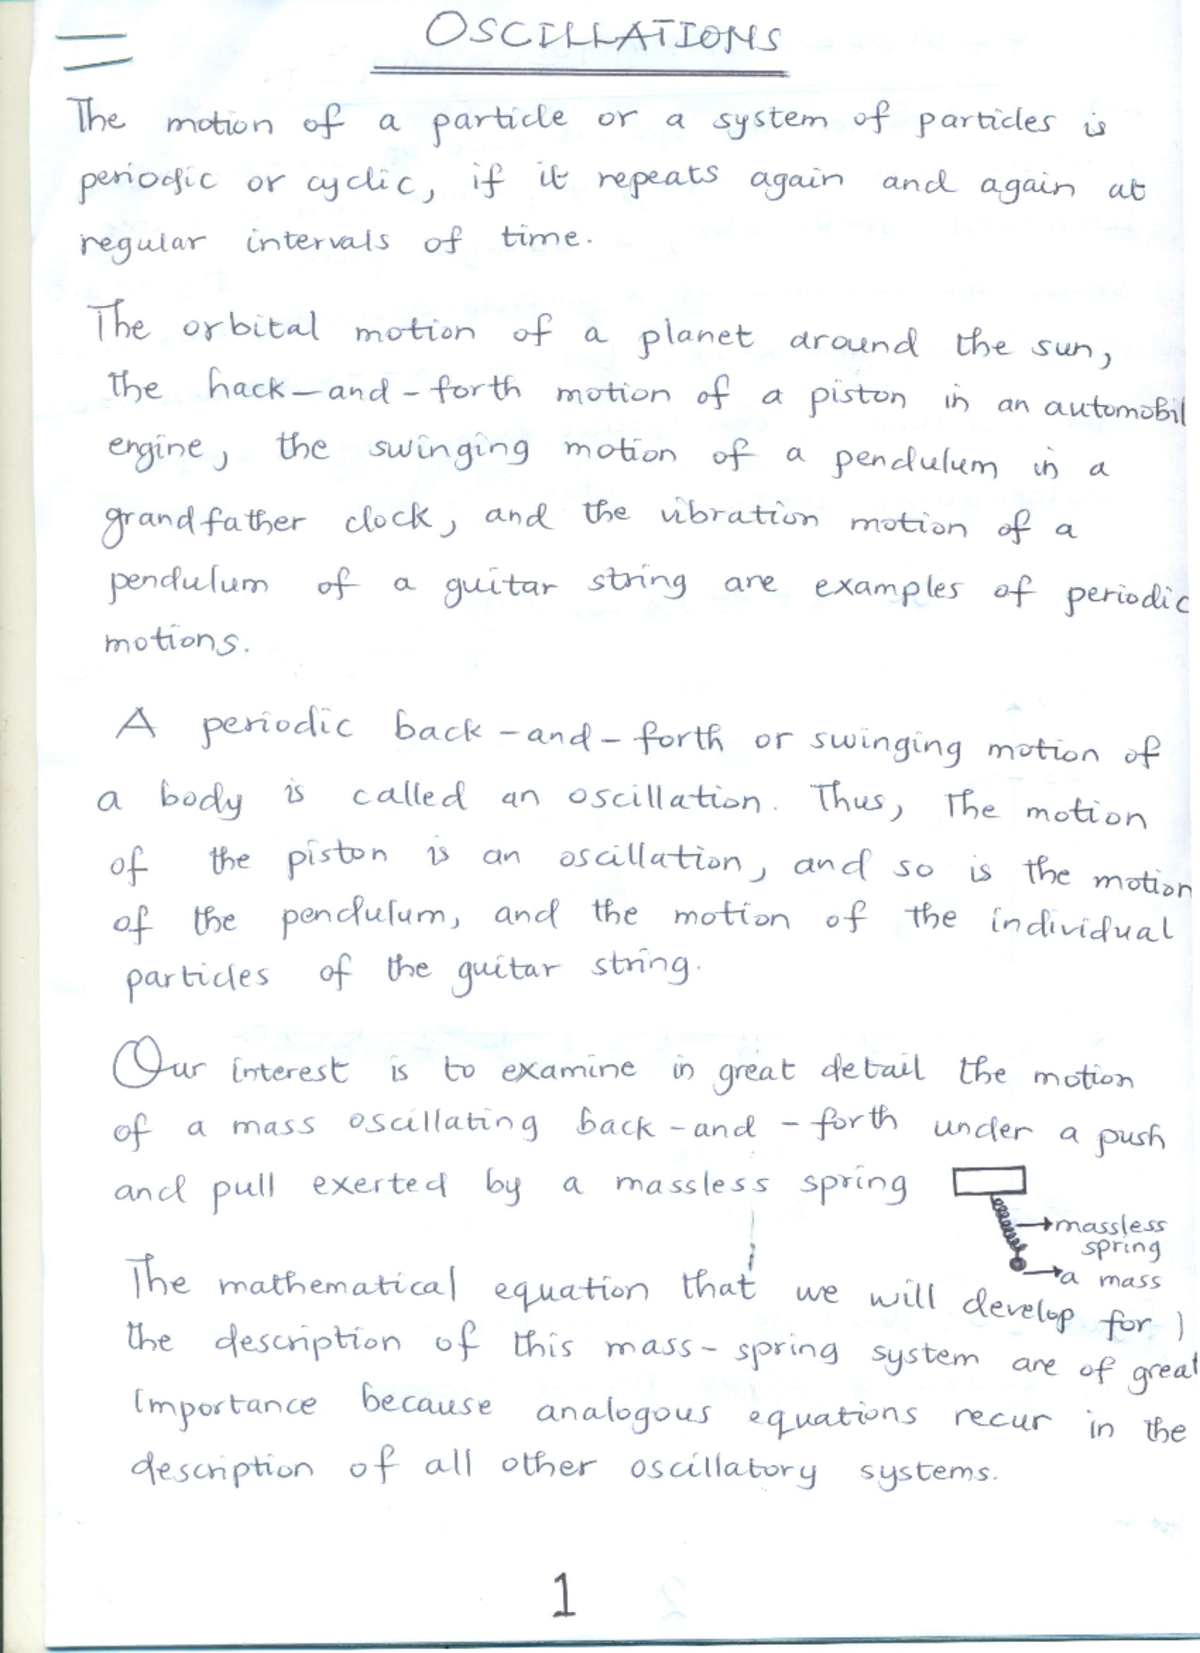 OSCILLATIONS
The motion of a particle or a system of particles is
periodic or cyclic, if it repeats again and again at
regular intervals of time.
The orbital motion of a planet around the sun,
the hack-and-forth motion of a piston in an automobil
engine, the swinging motion of a pendulum in a
grandfather clock, and the vibration motion of a
pendulum of a guitar string are examples of periodic
motions.
A periodic back-and-forth or swinging motion of
a body is called an oscillation. Thus, The motion
of the piston is an oscillation, and so is the motion
of the pendulum, and the motion of the individual
particles of the guitar string.
Our interest is to examine in great detail the motion
of a mass oscillating back-and-forth under a push
and pull exerted by a massless spring
massless
spring
a mass
The mathematical equation that we will develop for
the description of this mass-spring system are of great
Importance because analogous equations recur in the
description of all other oscillatory systems.
1